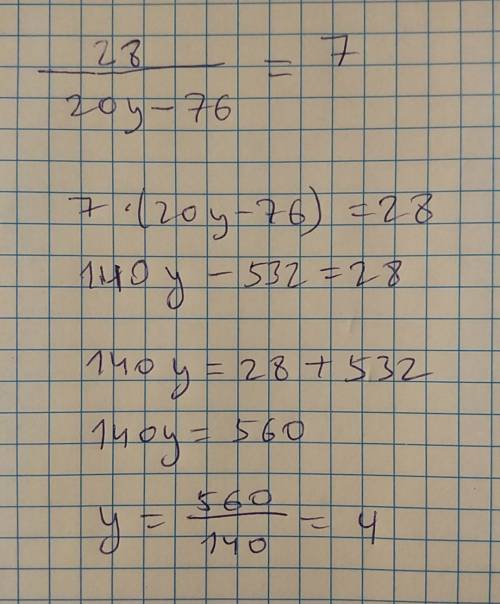 28/(20y-76) = 7
7·(20y-76)=28
140y-532=28
140y=28+532
140y=560
y=560/140=4